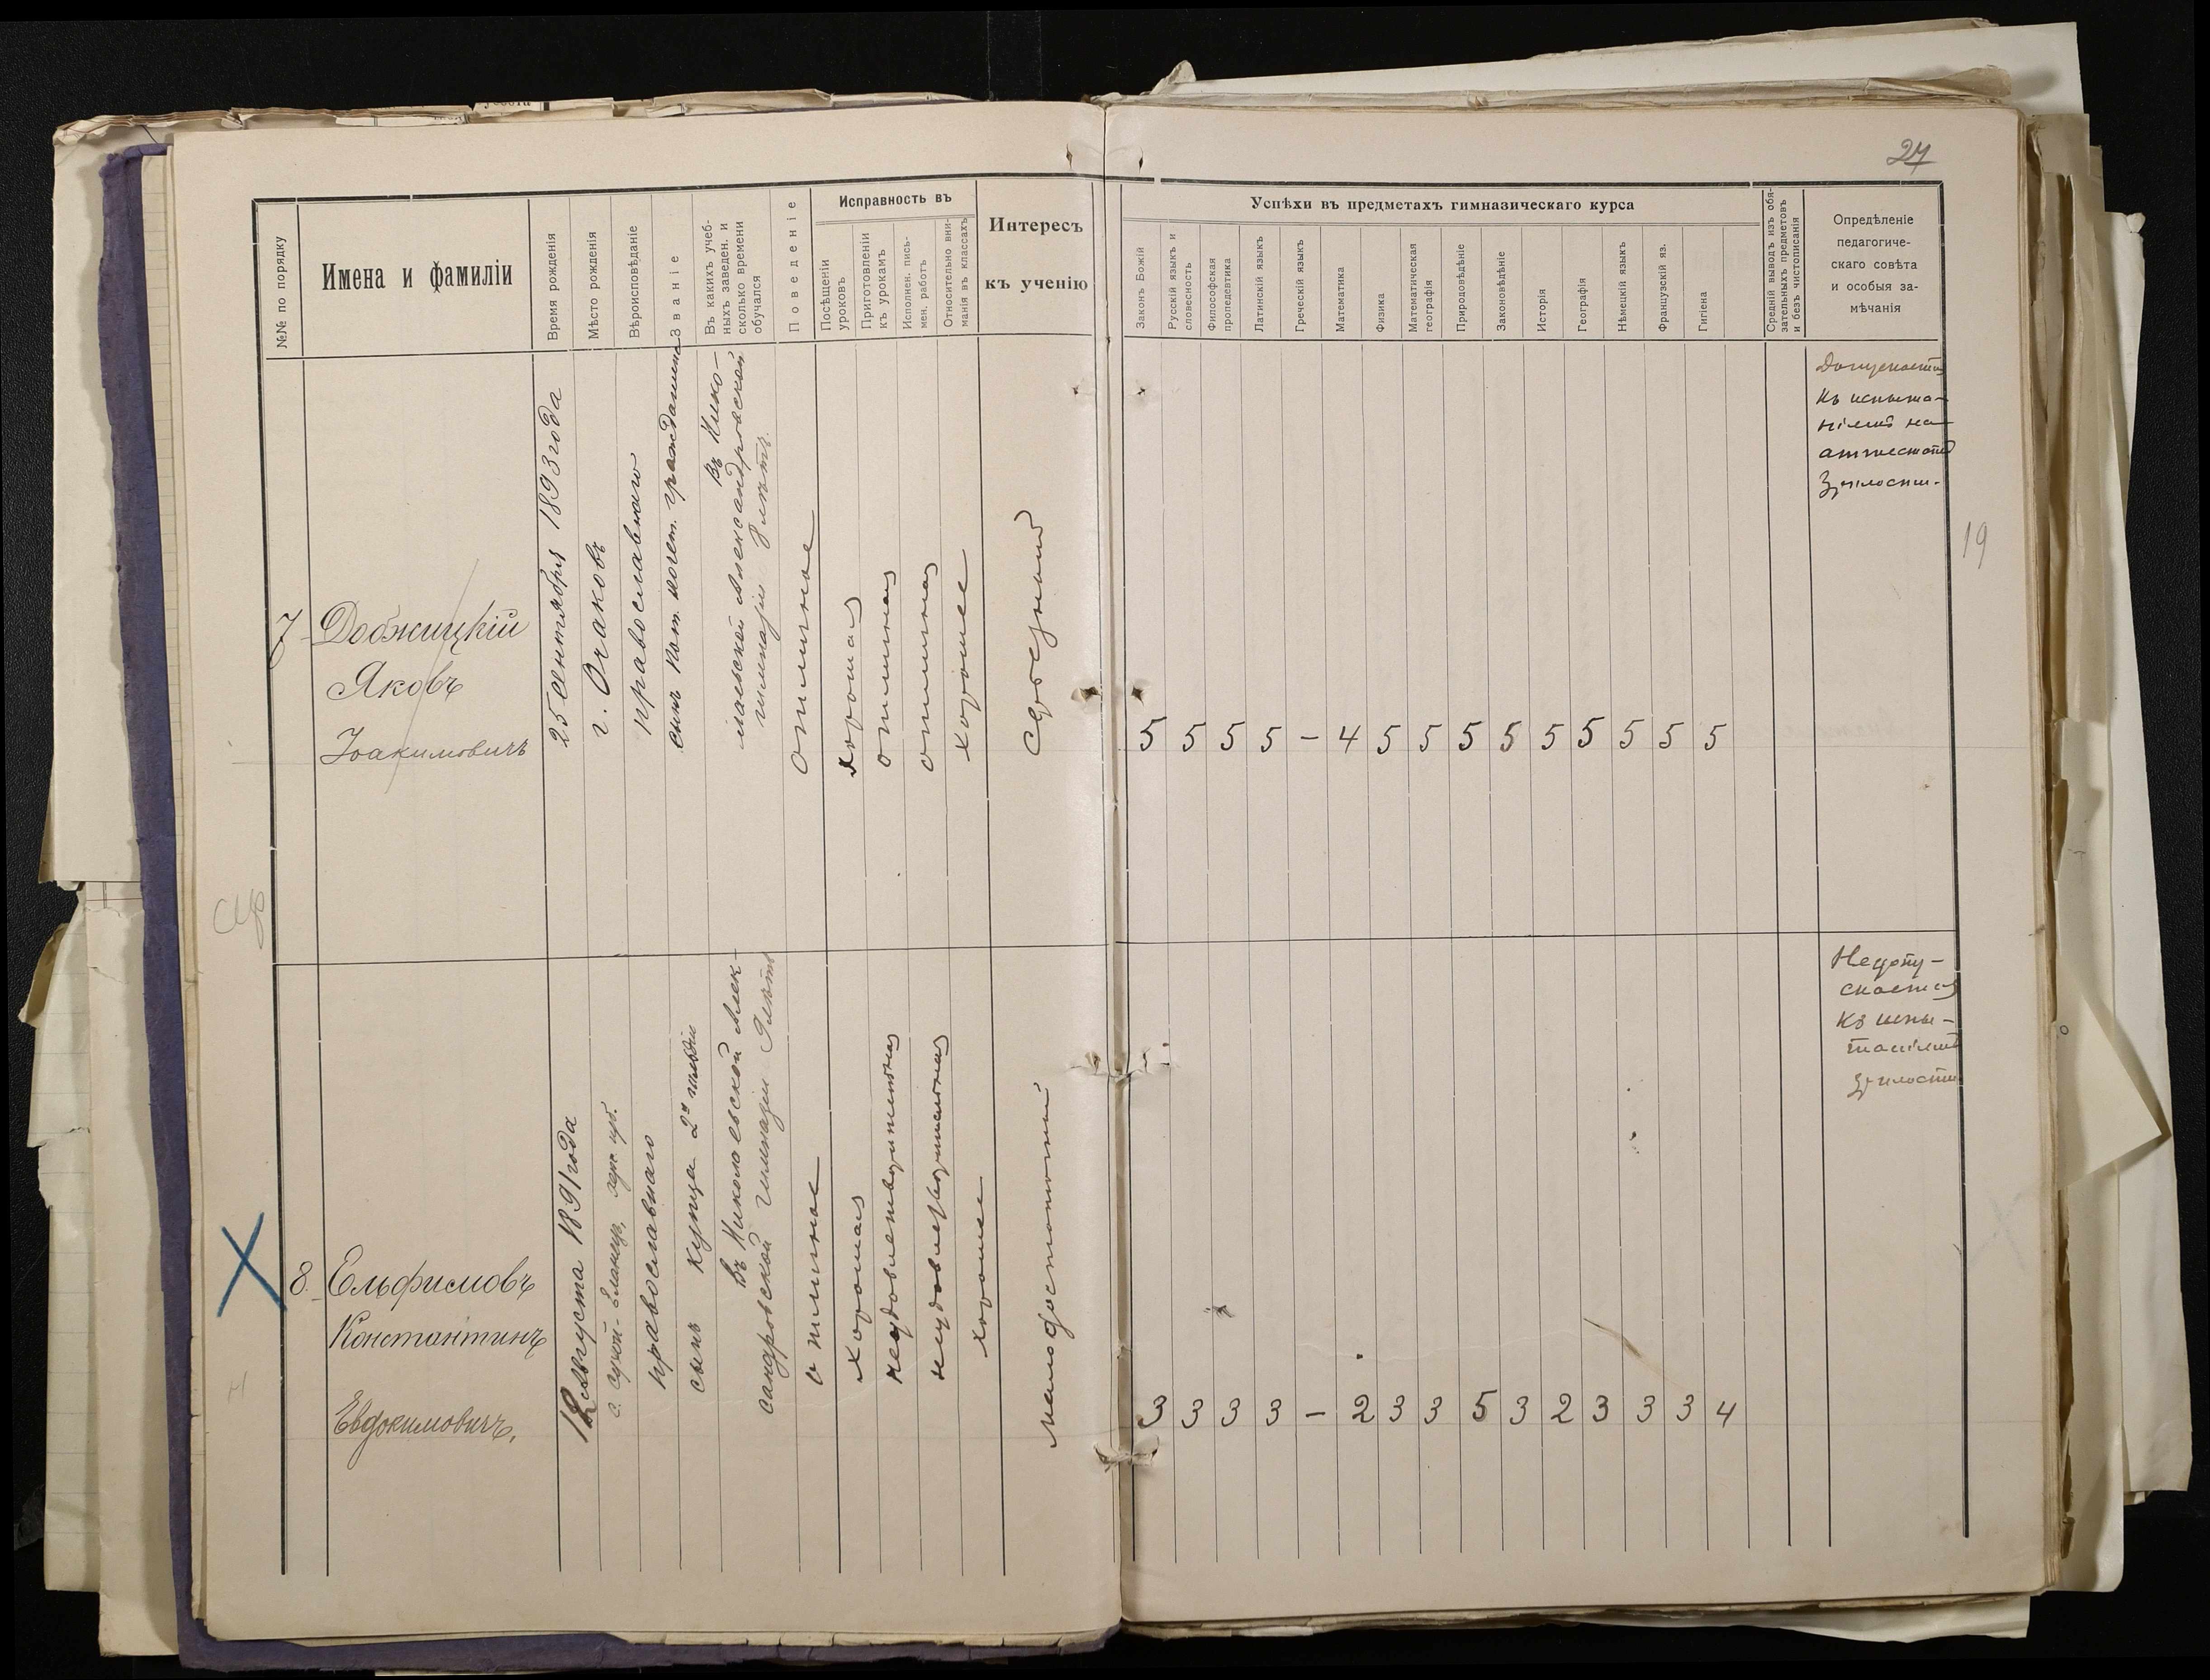 27
№№ по порядку
Имена и фамиліи
Время рожденія
Мѣсто рожденія
Вѣроисповѣданіе
Званіе
Въ какихъ учеб-
ныхъ заведен. и
сколько времени
обучался
Поведеніе
Исправность въ
Посѣщеніи
уроковъ
Приготовленіи
къ урокамъ
Исполнен. пись-
мен. работъ
Относительно вни-
манія въ классахъ
Интересъ
къ ученію
Успѣхи въ предметахъ гимназическаго курса
Законъ Божій
Русскій языкъ и
словесность
Философская
пропедевтика
Латинскій языкъ
Греческій языкъ
Математика
Физика
Математическая
географія
Природовѣдѣніе
Законовѣдѣніе
Исторія
Географія
Нѣмецкій языкъ
Французскій яз.
Гигіена
Средній выводъ изъ обя-
зательныхъ предметовъ
и безъ чистописанія
Опредѣленіе
педагогиче-
скаго совѣта
и особыя за-
мѣчанія
7
Добжицкій
Яковъ
Іоакимовичъ
25 Сентября 1893 года
г. Очаковъ
православнаго
сынъ пот. почет. гражданина
Въ Нико-
лаевской Александровской
гимназіи лѣтъ
отличное
хорошая
отличная
отличная
хорошее
Средній
5 5 5 5 – 4 5 5 5 5 5 5 5 5 5
Допускается
къ испыта-
ніямъ на
аттестатъ
Зрѣлости.
19
8.
Ельфимовъ
Константинъ
Евдокимовичъ.
12 Августа 1891 года
православнаго
сынъ купца 2й гильдіи
Въ Николаевской Алек-
сандровской Гимназіи лѣтъ
отличное
хорошая
неудовлетворительная
неудовлетворительная
хорошее
малодостаточный
3 3 3 3 – 2 3 3 5 3 2 3 3 3 4
Недопу-
скается
къ испы-
таніямъ
зрѣлости